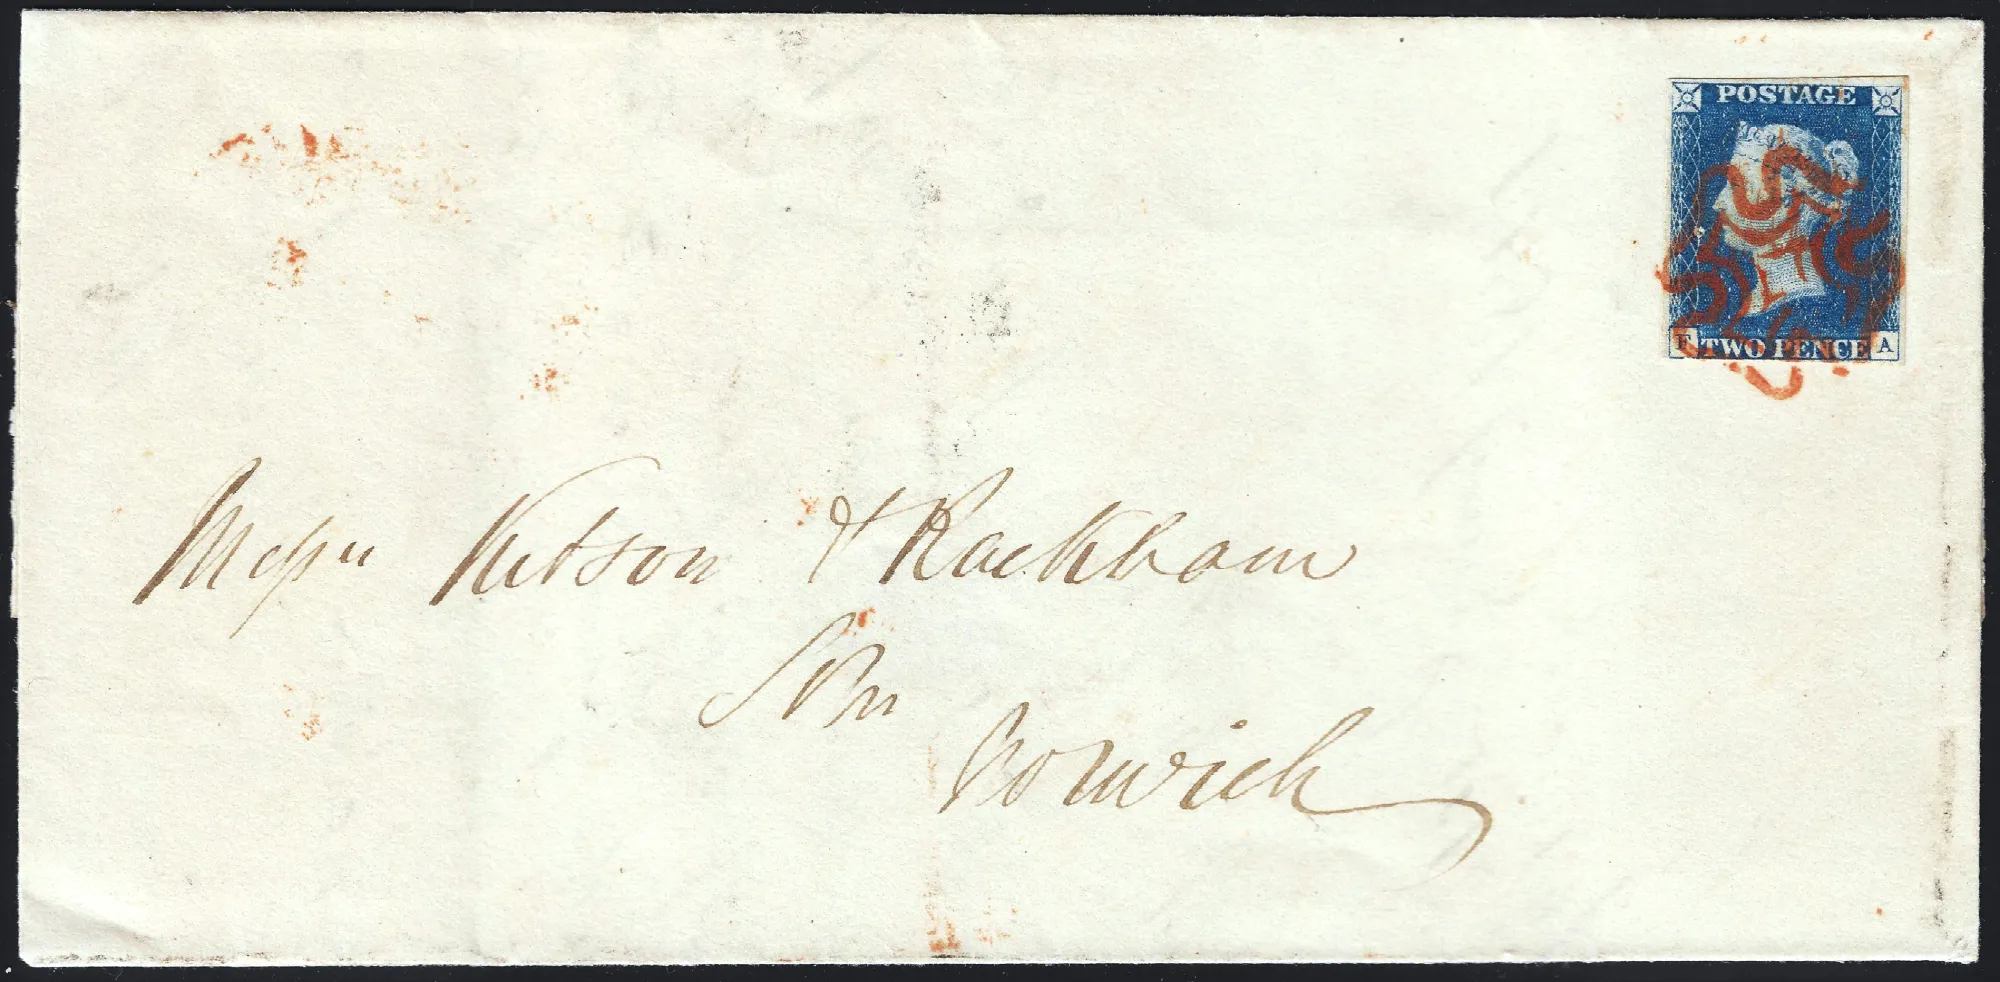 POSTAGE
F TWO PENCE A
Messrs Kitson & Rackham
Solrs
Norwich